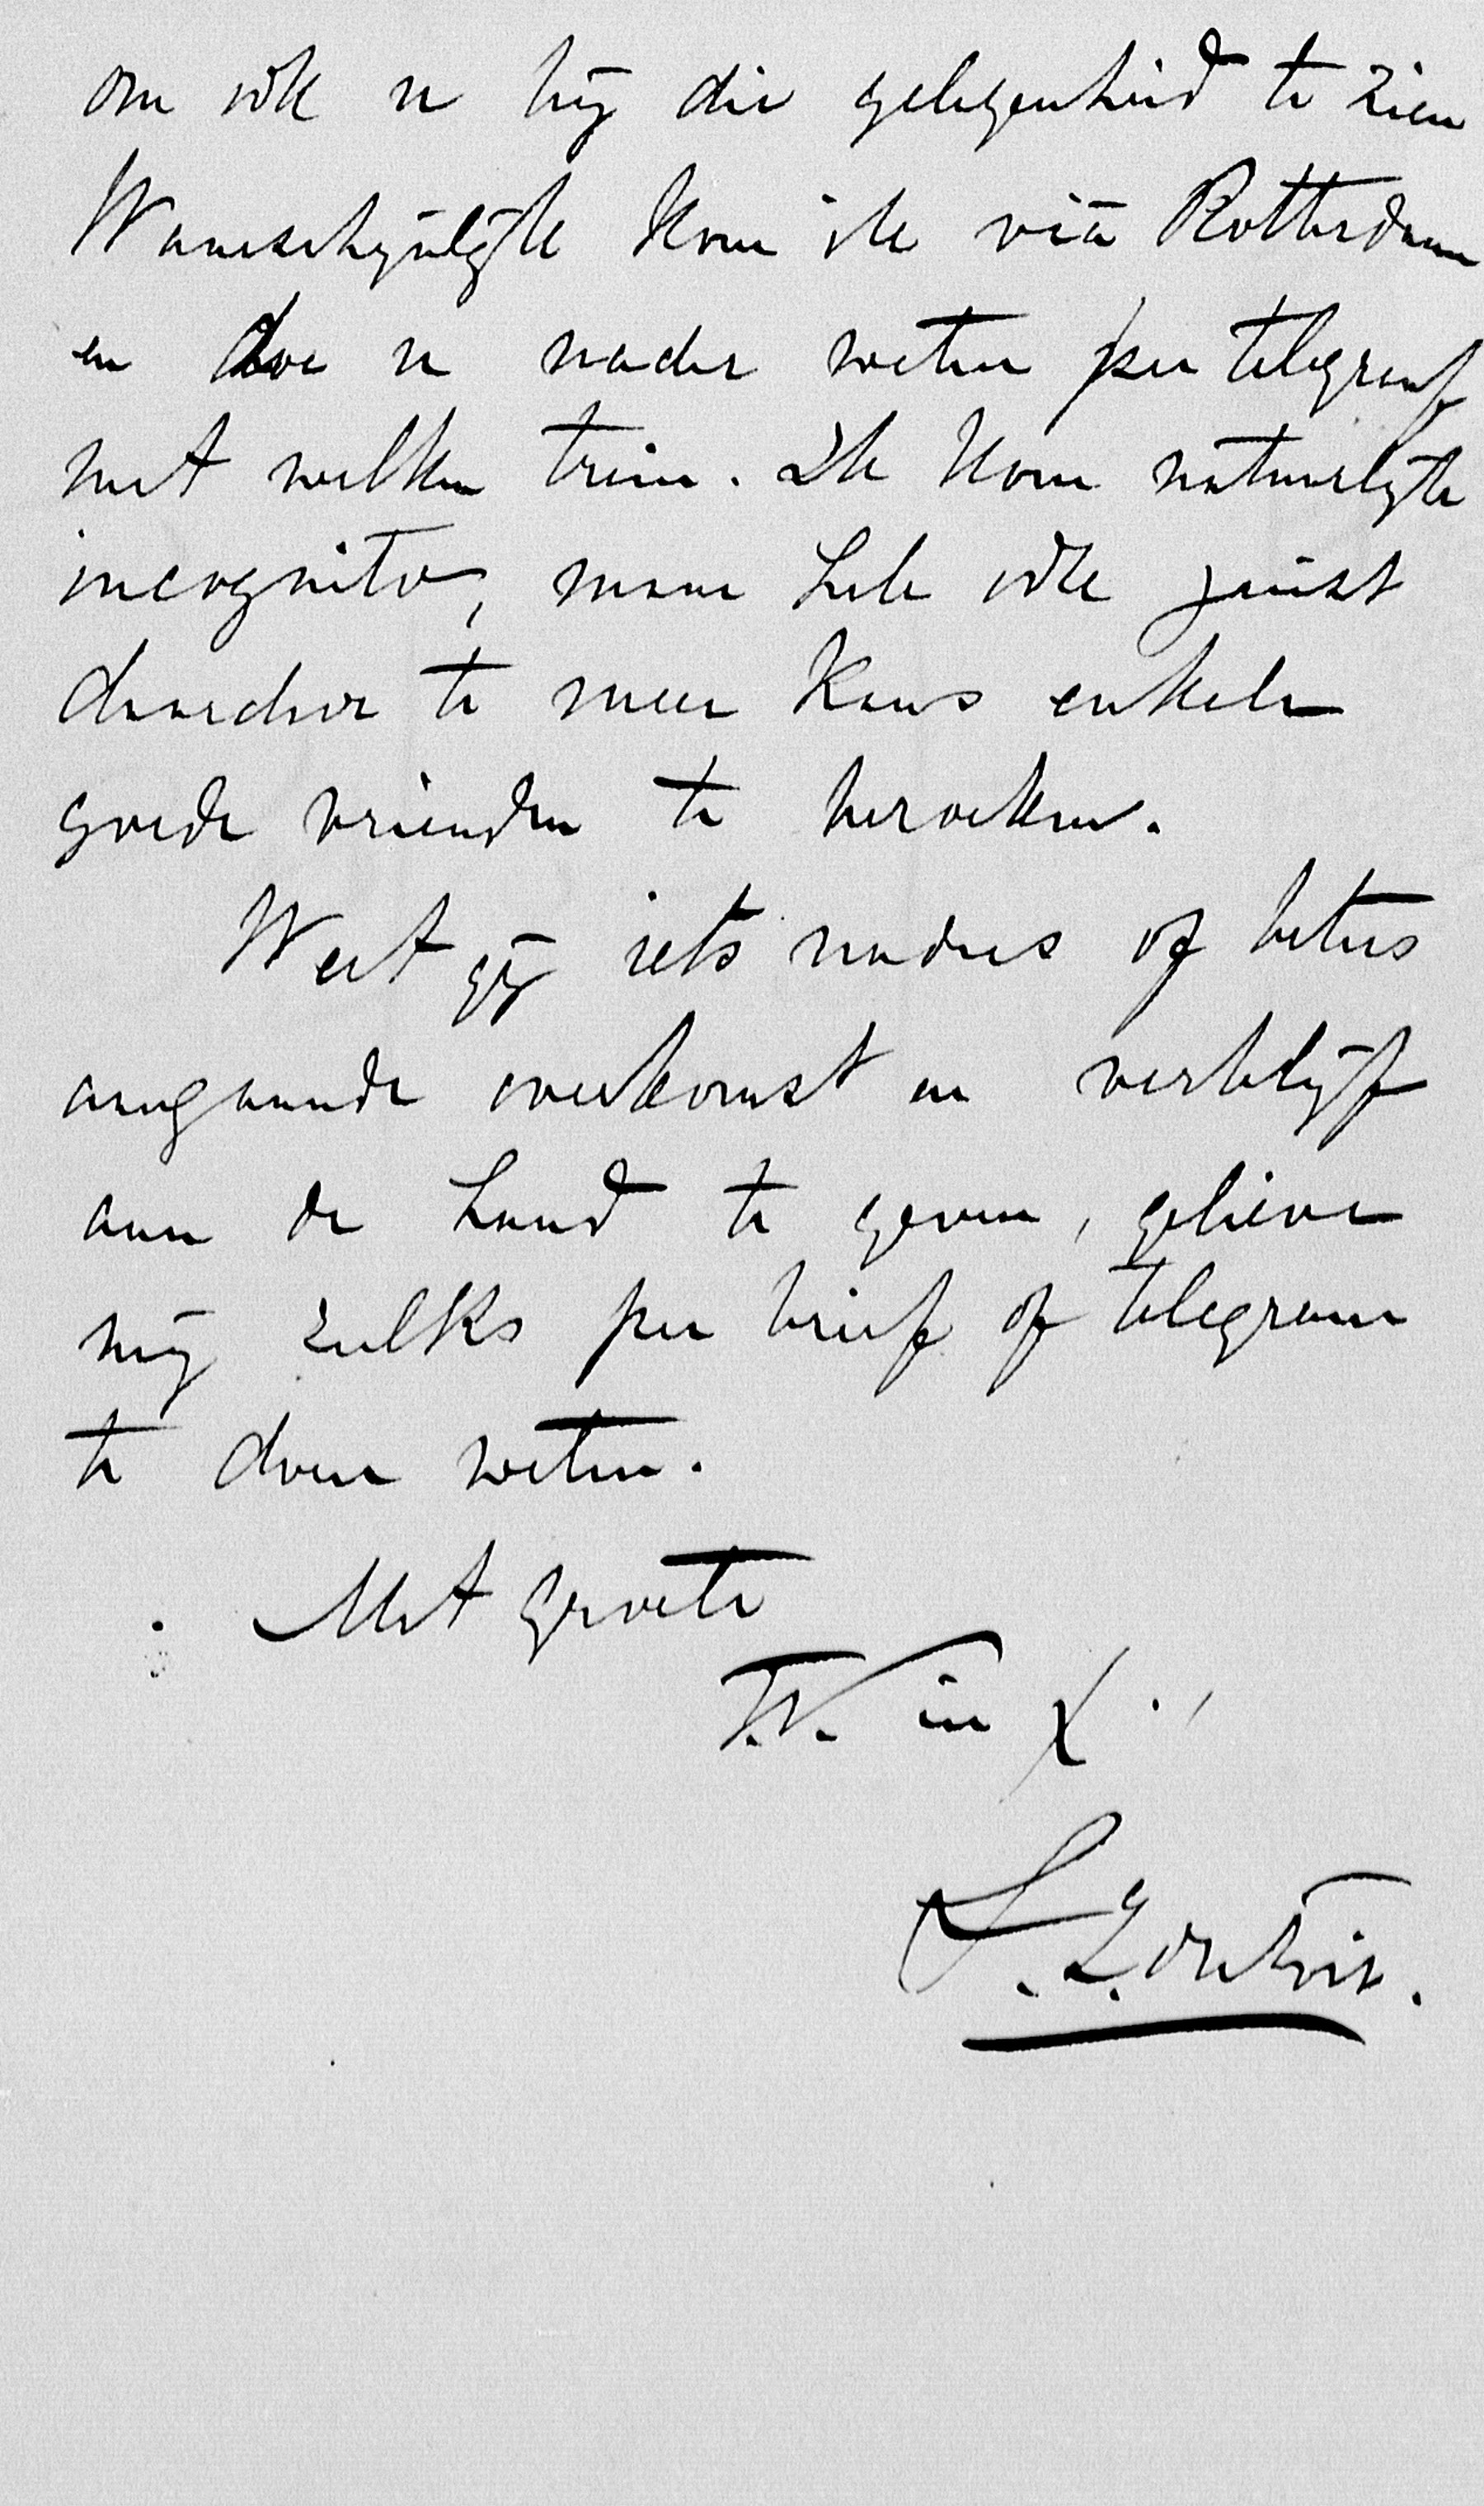 om ook u bij die gelegenheid te zien
Waarschijnlijk kom ik via Rotterdam
en doe u nader weten per telegraaf
met welken trein. Ik kom natuurlijk
incognito, maar heb ook juist
daardoor te meer kans enkele
goede vrienden te bezoeken.
Weet gij iets naders of beters
aangaande overkomst en verblijf
aan de hand te geven, gelieve
mij zulks per brief of telegram
te doen weten.
Met groete
T.W. in X.